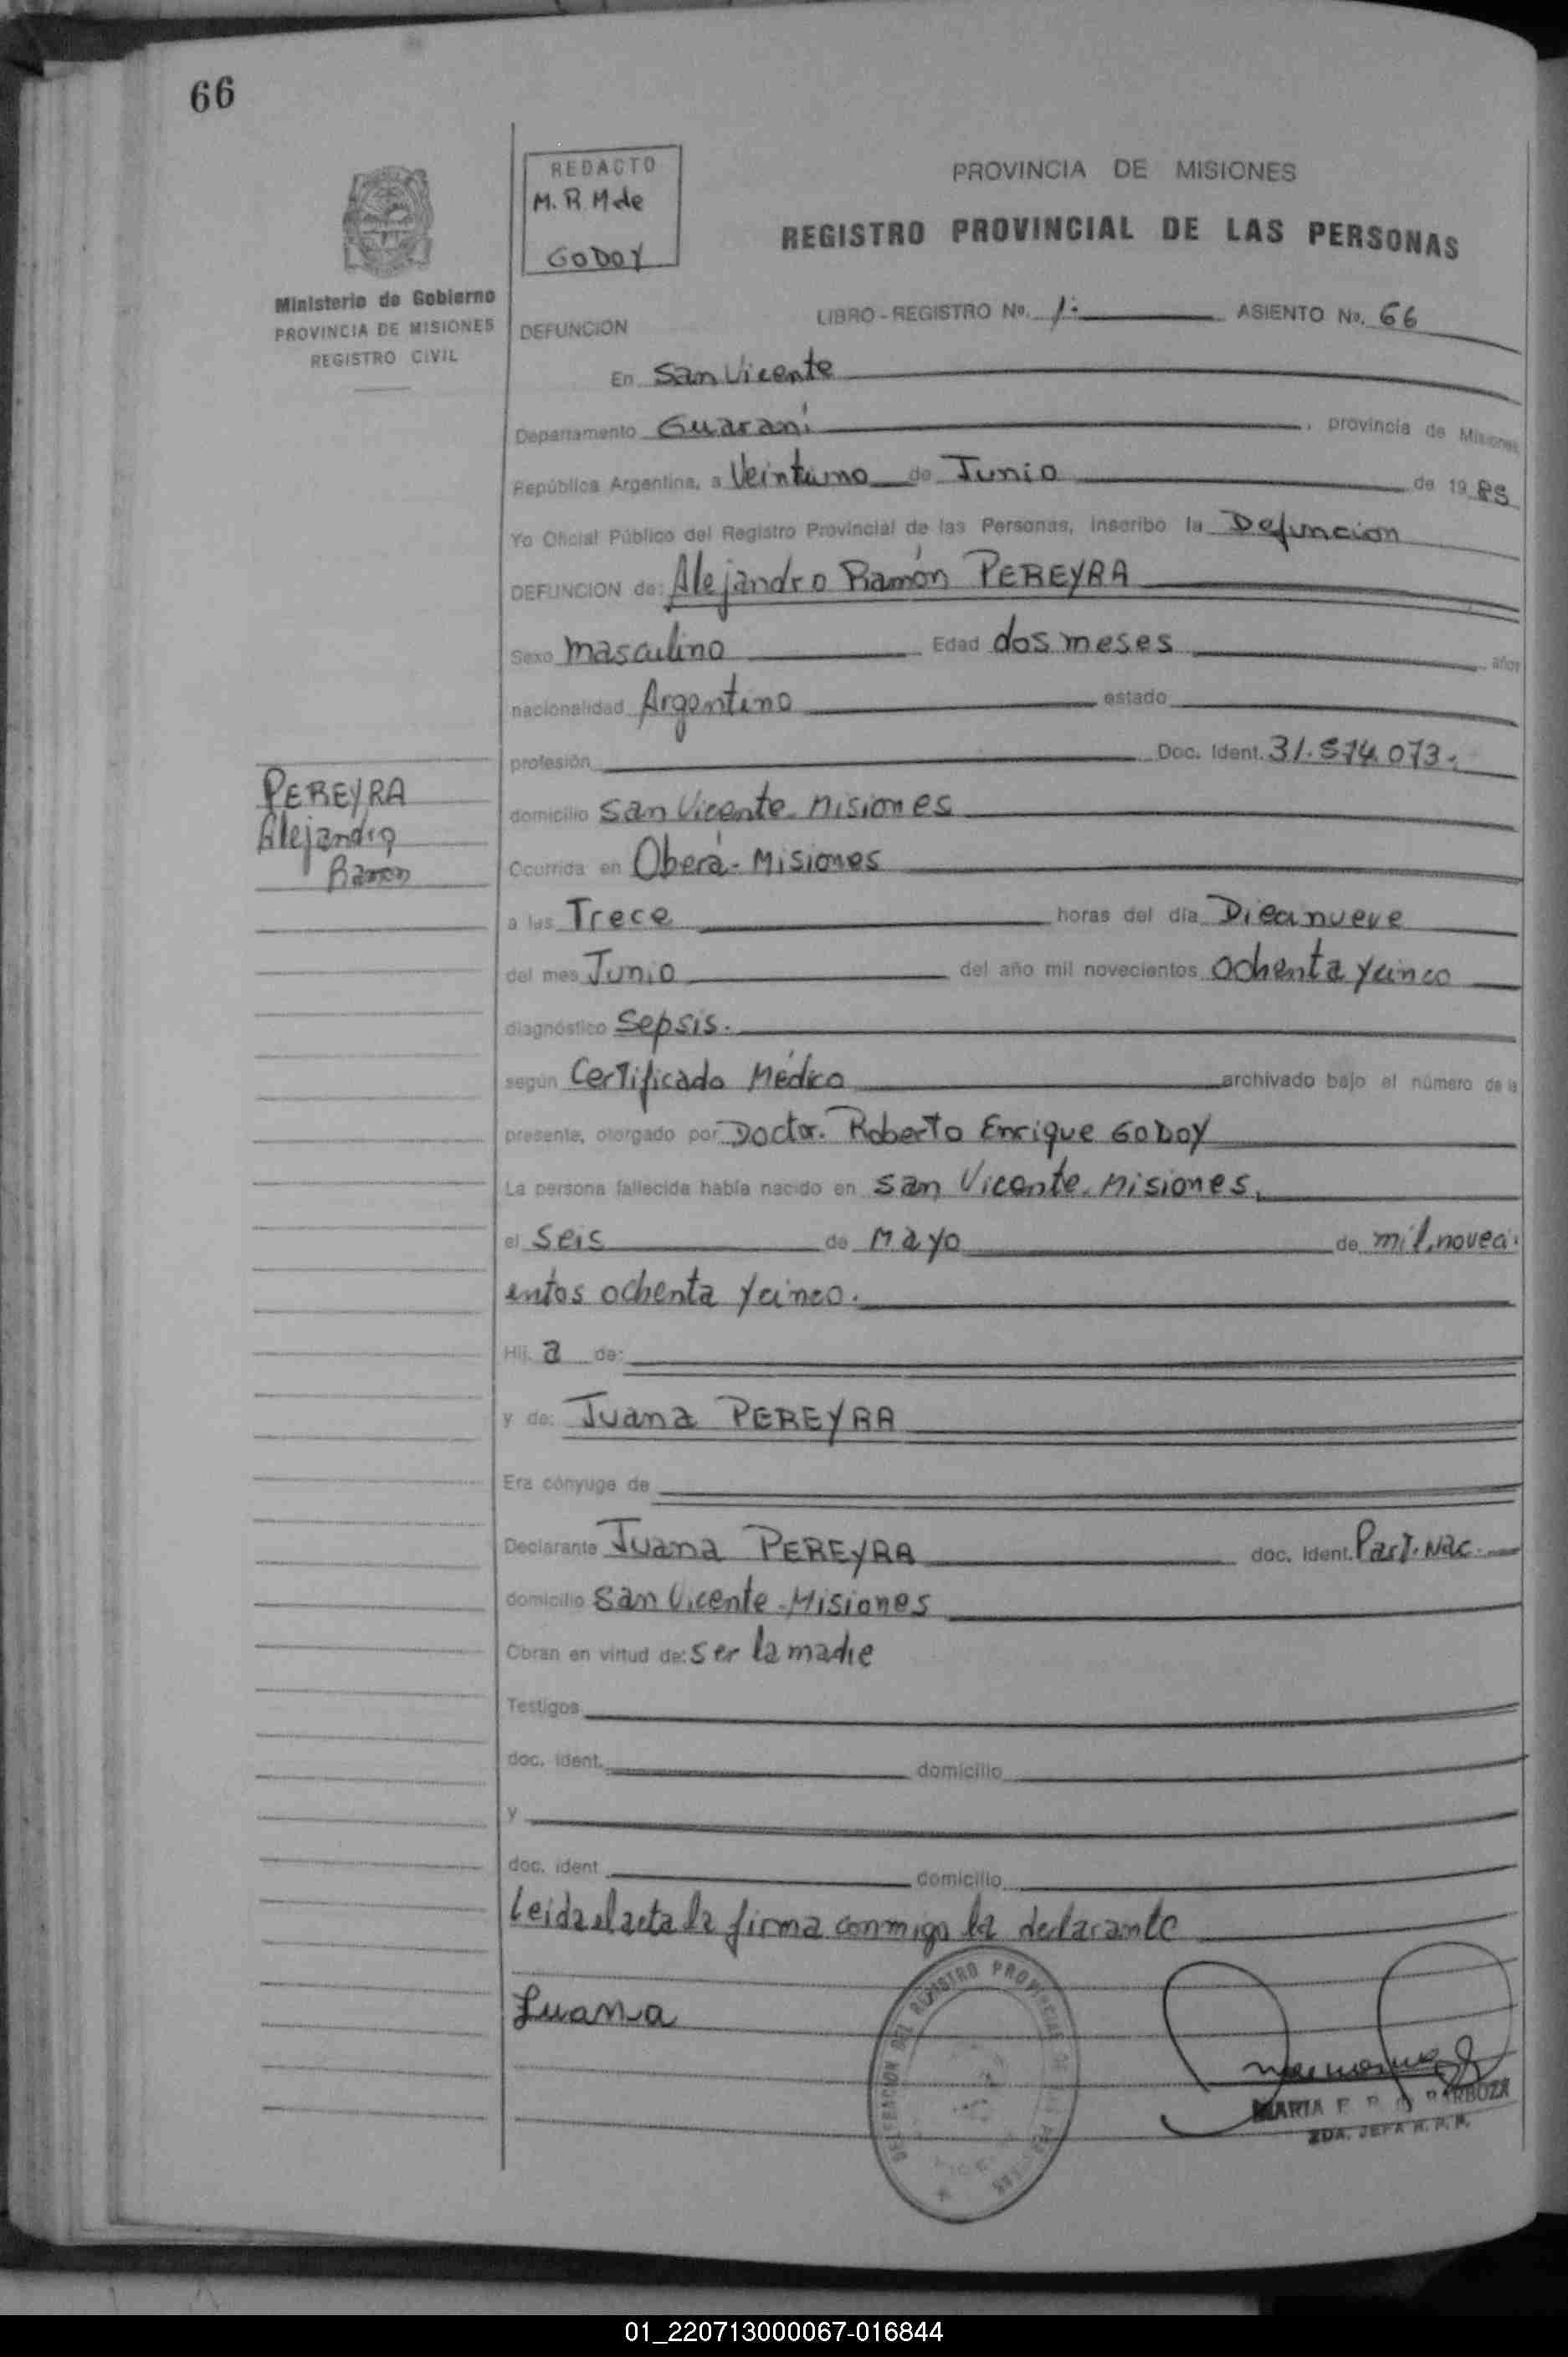 66
REDACTO
M. R. M de
GODOY
PROVINCIA DE MISIONES
REGISTRO PROVINCIAL DE LAS PERSONAS
Ministerio de Gobierno
PROVINCIA DE MISIONES
REGISTRO CIVIL
DEFUNCION
LIBRO - REGISTRO No. 1. ASIENTO No. 66
En San Vicente
Departamento Guaraní, provincia de Misiones
República Argentina, a Veintiuno de Junio de 19 85
Yo Oficial Público del Registro Provincial de las Personas, inscribo la Defuncion
DEFUNCION de: Alejandro Ramón PEREYRA
Sexo masculino Edad dos meses años
nacionalidad Argentino estado
profesión Doc. Ident. 31.574.073.
PEREYRA
Alejandro
Ramon
domicilio San Vicente - Misiones
Ocurrida en Oberá - Misiones
a las Trece horas del día Diecinueve
del mes Junio del año mil novecientos ochenta y cinco
diagnóstico Sepsis.
según Certificado Médico archivado bajo el número de la
presente, otorgado por Doctor. Roberto Enrique GODOY
La persona fallecida había nacido en San Vicente. Misiones,
el Seis de Mayo de mil noveci
entos ochenta y cinco.
Hij a de:
y de: Juana PEREYRA
Era cónyuge de
Declarante Juana PEREYRA doc. ident. Part. Nac.
domicilio San Vicente - Misiones
Obran en virtud de: Ser la madre
Testigos
doc. ident. domicilio
y
doc. ident domicilio
Leida el acta la firma conmigo la declarante
Juana
DELEGACION DEL REGISTRO PROVINCIAL DE LAS PERSONAS
MARIA BARBOZA
2DA. JEFA R. P. P.
01_220713000067-016844